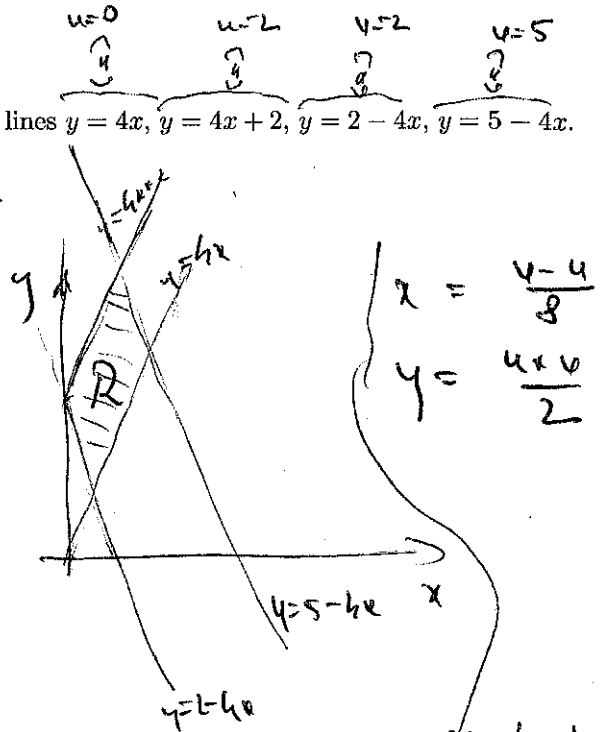 u=0 u=2 v=2 v=5
lines y = 4x, y = 4x + 2, y = 2 − 4x, y = 5 − 4x.
y=4x+2
y=4x
y
R
x = v-u / 8
y = u+v / 2
x
y=5-4x
y=2-4x